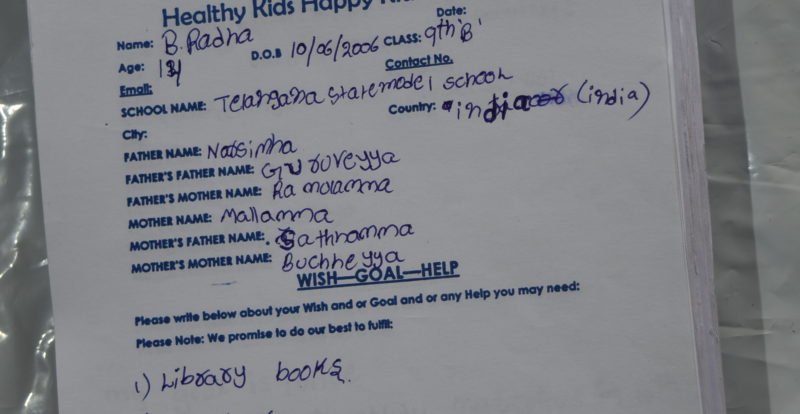 Healthy Kids Happy
Date:
Name: B. Radha
D.O.B 10/06/2006 CLASS: 9th 'B'
Age:
Contact No.
Email:
SCHOOL NAME: Telangana state model school
Country: india (india)
City:
FATHER NAME: Narsimha
FATHER'S FATHER NAME: Guruveyya
FATHER'S MOTHER NAME: Ramulamma
MOTHER NAME: Mallamma
MOTHER'S FATHER NAME: Sathnamma
MOTHER'S MOTHER NAME: Buchheyya
WISH—GOAL—HELP
Please write below about your Wish and or Goal and or any Help you may need:
Please Note: We promise to do our best to fulfil:
1) Library books.